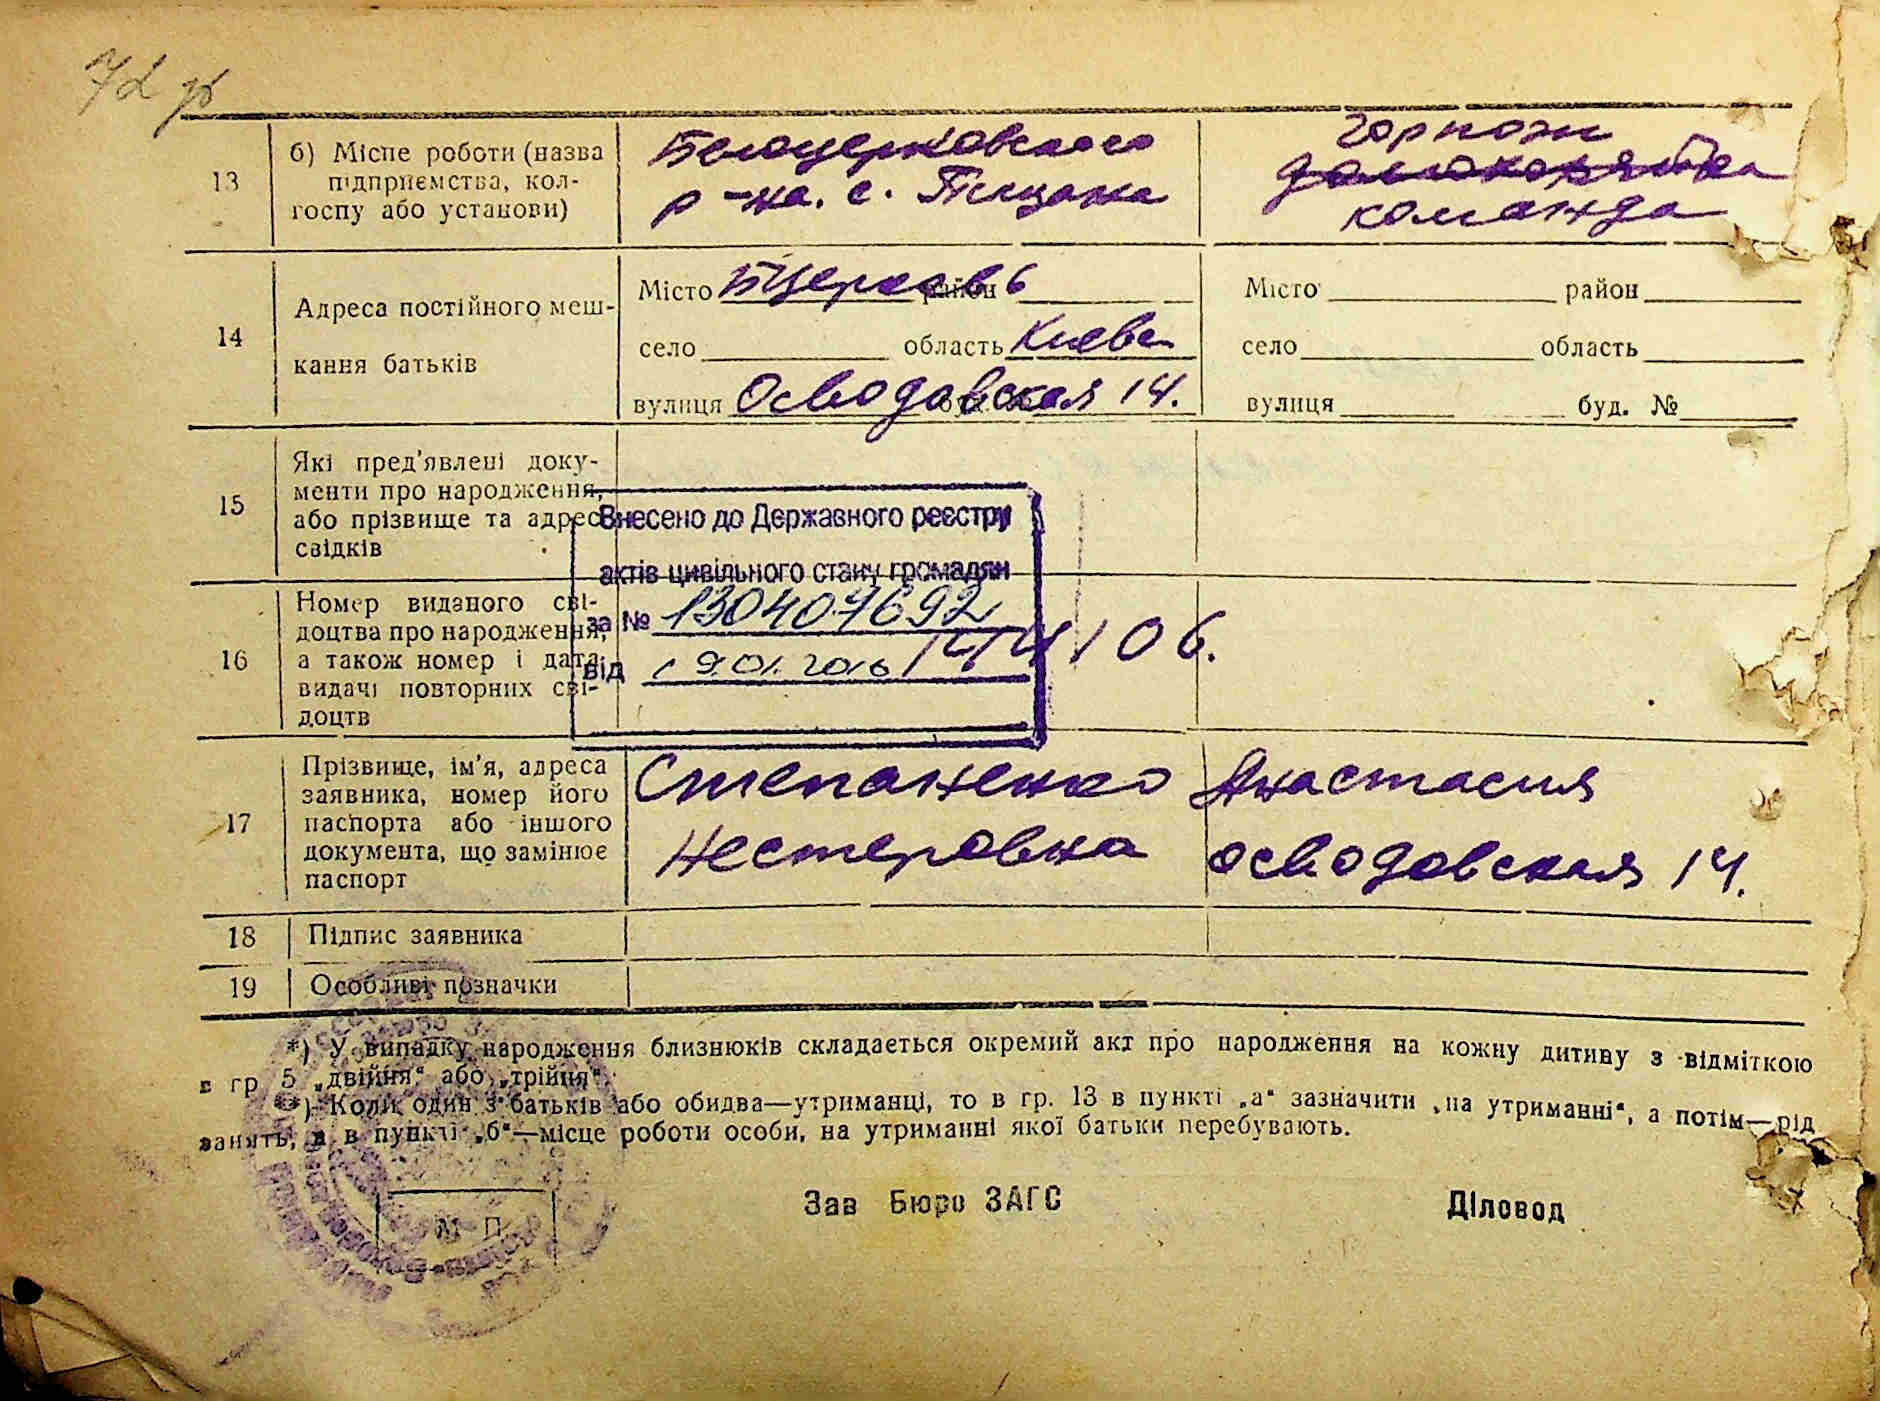 13
б) Місце роботи (назва
підприємства, кол-
госпу або установи)
Белоцерковского
р-на. с. Пищана
Горпож
команда
14
Адреса постійного меш-
кання батьків
Місто БЦерковь район
село область Киевс
вулиця Осводовская 14.
Місто район
село область
вулиця буд. №
15
Які пред'явлені доку-
менти про народження,
або прізвище та адрес
свідків
Внесено до Державного реєстру
актів цивільного стану громадян
за № 130407692
від 19.01.2016
16
Номер виданого сві-
доцтва про народження,
а також номер і дата
видачі повторних сві-
доцтв
106.
17
Прізвище, ім'я, адреса
заявника, номер його
паспорта або іншого
документа, що замінює
паспорт
Степаненко Анастасия
Нестеровна Осводовская 14.
18 Підпис заявника
19 Особливі позначки
*) У випадку народження близнюків складається окремий акт про народження на кожну дитину з відміткою
в гр 5 „двійня“ або „трійня“.
**) Коли один з батьків або обидва—утриманці, то в гр. 13 в пункті „а“ зазначити „на утриманні“, а потім—рід
занять, а в пункті „б“—місце роботи особи, на утриманні якої батьки перебувають.
М П
Зав Бюро ЗАГС
Діловод